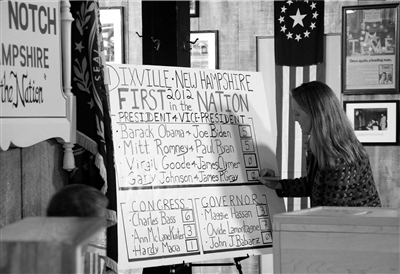 NOTCH
HAMPSHIRE
"First in the Nation"
DIXVILLE · NEW HAMPSHIRE
FIRST 2012 in the NATION
PRESIDENT & VICE-PRESIDENT
Barack Obama & Joe Biden 5
Mitt Romney & Paul Ryan 5
Virgil Goode & James Clymer 0
Gary Johnson & James P. Gray
CONGRESS
Charles Bass 6
Ann McLane Kuster 3
Hardy Macia 1
GOVERNOR
Maggie Hassan 3
Ovide Lamontagne
John J. Babiarz